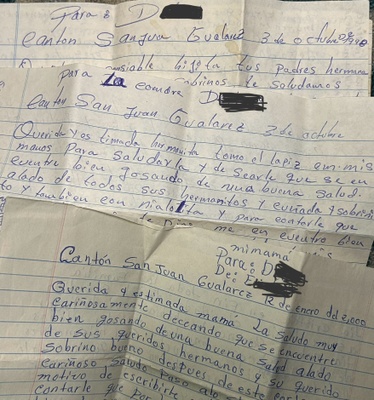 Para: D
Canton San Juan Gualarez 3 de octubre
hijita tus padres herman
Saludamos
para La comdre D
Canton San Juan Gualarez 3 de octubre
Querida y estimada hermanita tomo el lapiz en mis
manos Para Saludarla y de Searle que se en
cuentre bien josando de una buena Salud.
alado de todos sus hermanitos y cuñada y sobrin
y tambien con mialo y para contarle que
me en cuentro bien
mimamá
Para: D
De: E
Cantón San Juan Gualarez 12 de enero del 2,000
Querida y estimada mama La saludo muy
cariñosamente deceando que se encuentre
bien gosando de una buena Salud alado
de sus queridos hermanos y su querido
Sobrino bueno despues de este cor
cariñoso Saludo paso alo
motivo de escribirte
contarle que por